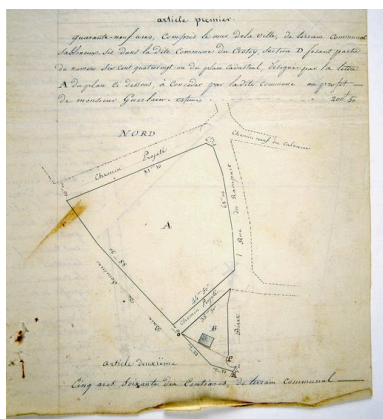 article premier.
Quarante-neuf ares, Compris le mur de la ville, de terrain Communal
Sablonneux, sis dans la dite Commune du Crotoy, Section D faisant partie
du numéro Six cent quatrevingt un du plan cadastral, désigné par la lettre
A du plan Ci dessous, à Concéder par la dite Commune au profit
de monsieur Guerlain. estimé 200f 50
NORD
Chemin neuf du Calvaire
Chemin Projeté
A
Rue du Rempart
Chemin Projeté
B
article deuxième
Cinq ares Soixante dix Centiares, de terrain communal